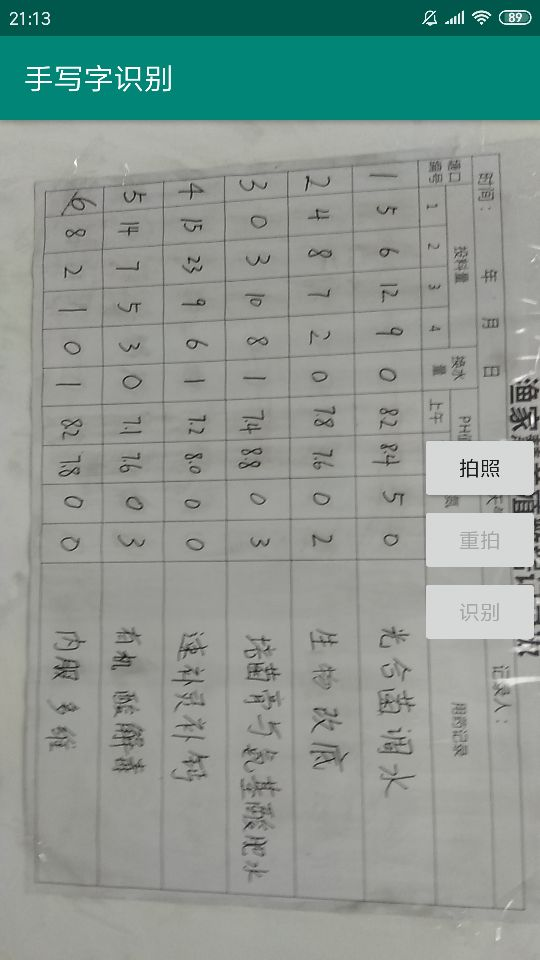 21:13
89
手写字识别
渔家
时间： 年 月 日 记录人：
塘口编号 投料量 换水量 PH值 用药记录
1 2 3 4 上午
1 5 6 12 9 0 8.2 8.4 5 0 光合菌调水
2 4 8 7 2 0 7.8 7.6 0 2 生物改底
3 0 3 10 8 1 7.4 8.8 0 3 培菌膏与氨基酸肥水
4 15 23 9 6 1 7.2 8.0 0 0 速补灵补钙
5 14 7 5 3 0 7.1 7.6 0 3 有机酸解毒
6 8 2 1 0 1 8.2 7.8 0 0 内服多维
拍照
重拍
识别